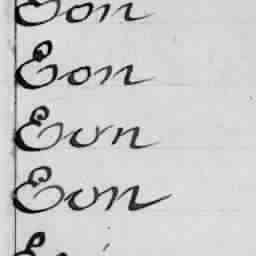 Eon
Eon
Eon
Eon